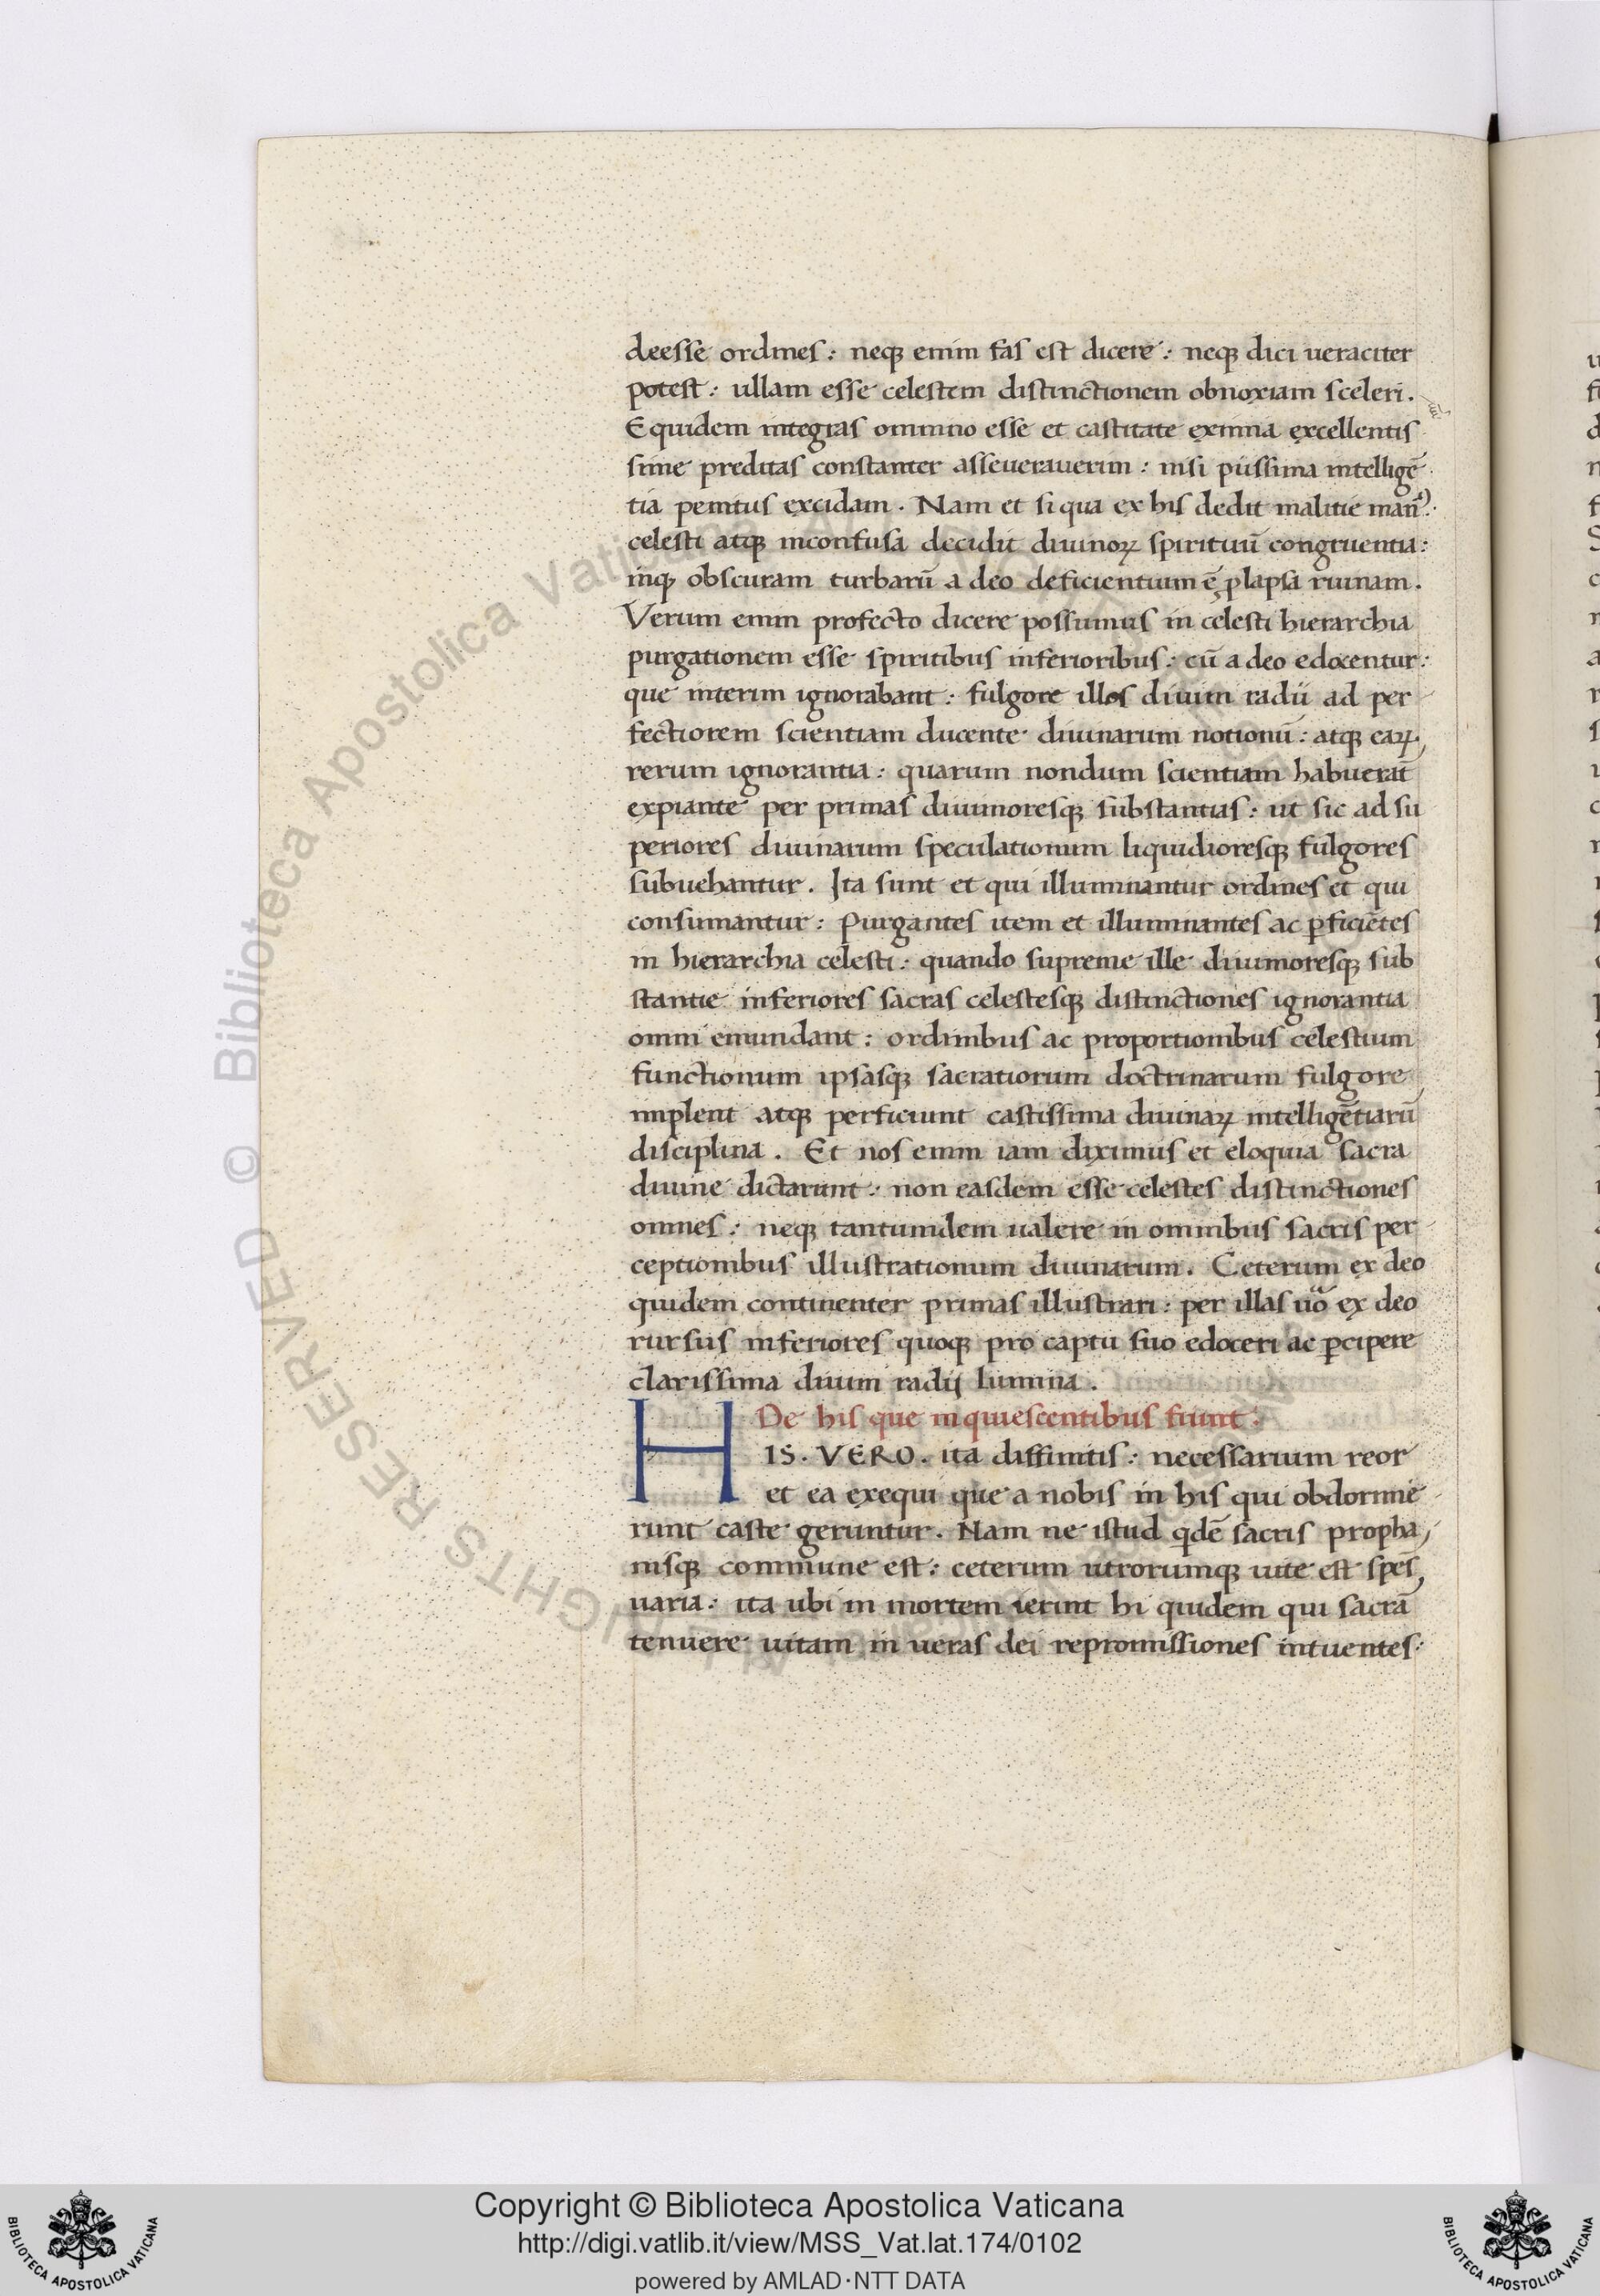 deesse ordines: neqꝫ enim fas est dicere: neqꝫ dici ueraciter
potest: ullam esse celestem distinctionem obnoxiam sceleri.
Equidem integras omnino esse et castitate eximia excellentis
sime preditas constanter asseverauerim: nisi piissima intelligē
tia penitus excidam. Nam et si qua ex his dedit malitie man⁹
celesti atqꝫ inconfusa decidit diuinoꝝ spirituū congruentia:
inqꝫ obscuram turbarū a deo deficientium ē ꝓlapsa ruinam.
Verum enim profecto dicere possumus in celesti hierarchia
purgationem esse spiritibus inferioribus: cū a deo edocentur:
que interim ignorabant: fulgore illos diuini radii ad per
fectiorem scientiam ducente diuinarum notionū: atqꝫ eaꝝ
rerum ignorantia: quarum nondum scientiam habuerāt
expiante per primas diuinioresqꝫ substantias: ut sic ad su
periores diuinarum speculationum liquidioresqꝫ fulgores
subuehantur. Ita sunt et qui illuminantur ordines et qui
consumantur: Purgantes item et illuminantes ac ꝑficiētes
in hierarchia celesti: quando supreme ille diuinioresqꝫ sub
stantie inferiores sacras celestesqꝫ distinctiones ignorantia
omni emundant: ordinibus ac proportionibus celestium
functionum ipsasqꝫ sacratiorum doctrinarum fulgore
implent atqꝫ perficiunt castissima diuinaꝝ intelligētiarū
disciplina. Et nos enim iam diximus et eloquia sacra
diuine dictarunt: non easdem esse celestes distinctiones
omnes: neqꝫ tantumdem ualere in omnibus sacris per
ceptionibus illustrationum diuinarum. Ceterum ex deo
quidem continenter primas illustrari: per illas uō ex deo
rursus inferiores quoqꝫ pro captu suo edoceri ac ꝑcipere
clarissima diuini radij lumina.
De his que in quiescentibus fiunt:
HIS. VERO. ita diffinitis: necessarium reor
et ea exequi que a nobis in his qui obdormie
runt caste geruntur. Nam ne istud qdē sacris propha
nisqꝫ commune est: ceterum utrorumqꝫ uite est spēs
uaria: ita ubi in mortem ierint hi quidem qui sacrā
tenuere uitam in ueras dei repromissiones intuentes:
© Biblioteca Apostolica Vaticana
RIGHTS RESERVED
Copyright © Biblioteca Apostolica Vaticana
http://digi.vatlib.it/view/MSS_Vat.lat.174/0102
powered by AMLAD·NTT DATA
BIBLIOTECA APOSTOLICA VATICANA
BIBLIOTECA APOSTOLICA VATICANA